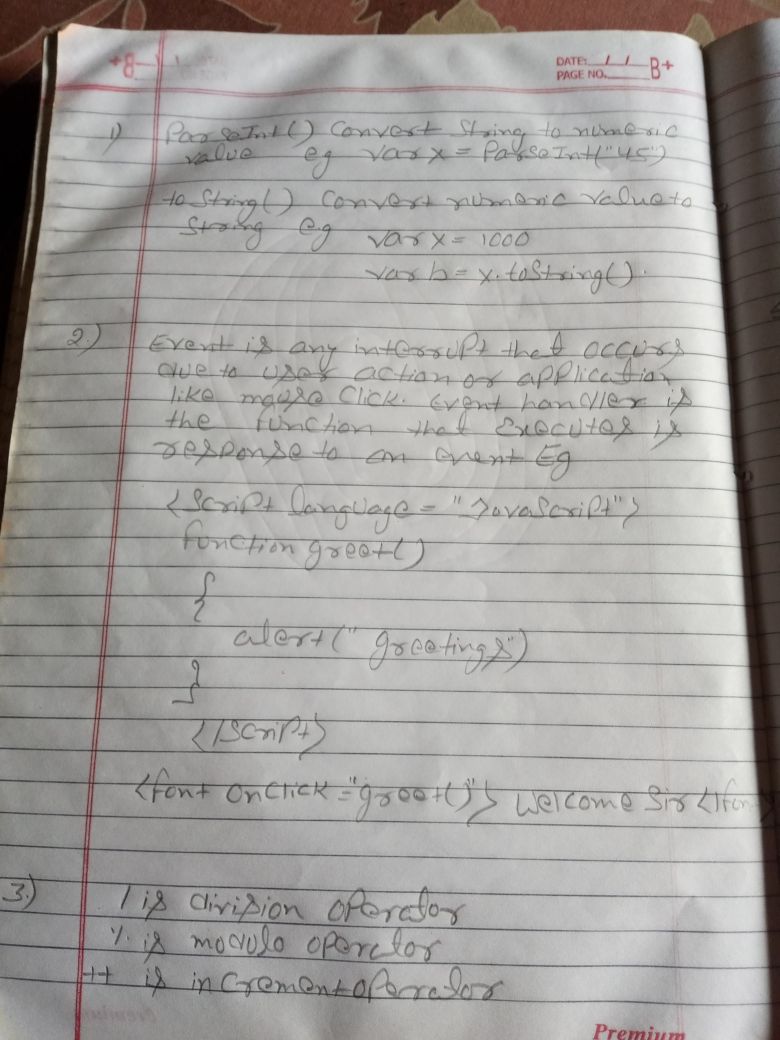 DATE: / /
PAGE NO.
B+
1) ParseInt() Convert String to numeric
value eg var x = ParseInt("45")
to String() Convert numeric value to
String eg var x = 1000
var b = x.toString().
2.) Event is any interrupt that occurs
due to user action or application
like mouse click. Event handler is
the function that executes is
response to an event Eg
<Script language = "JavaScript">
function greet()
{
alert("greetings")
}
</Script>
<font onclick = "greet()"> Welcome Sir </fon
3.) / is division operator
% is modulo operator
++ is increment operator
Premium